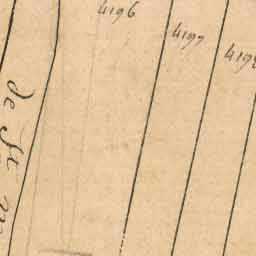 4196
4197
4198
de St